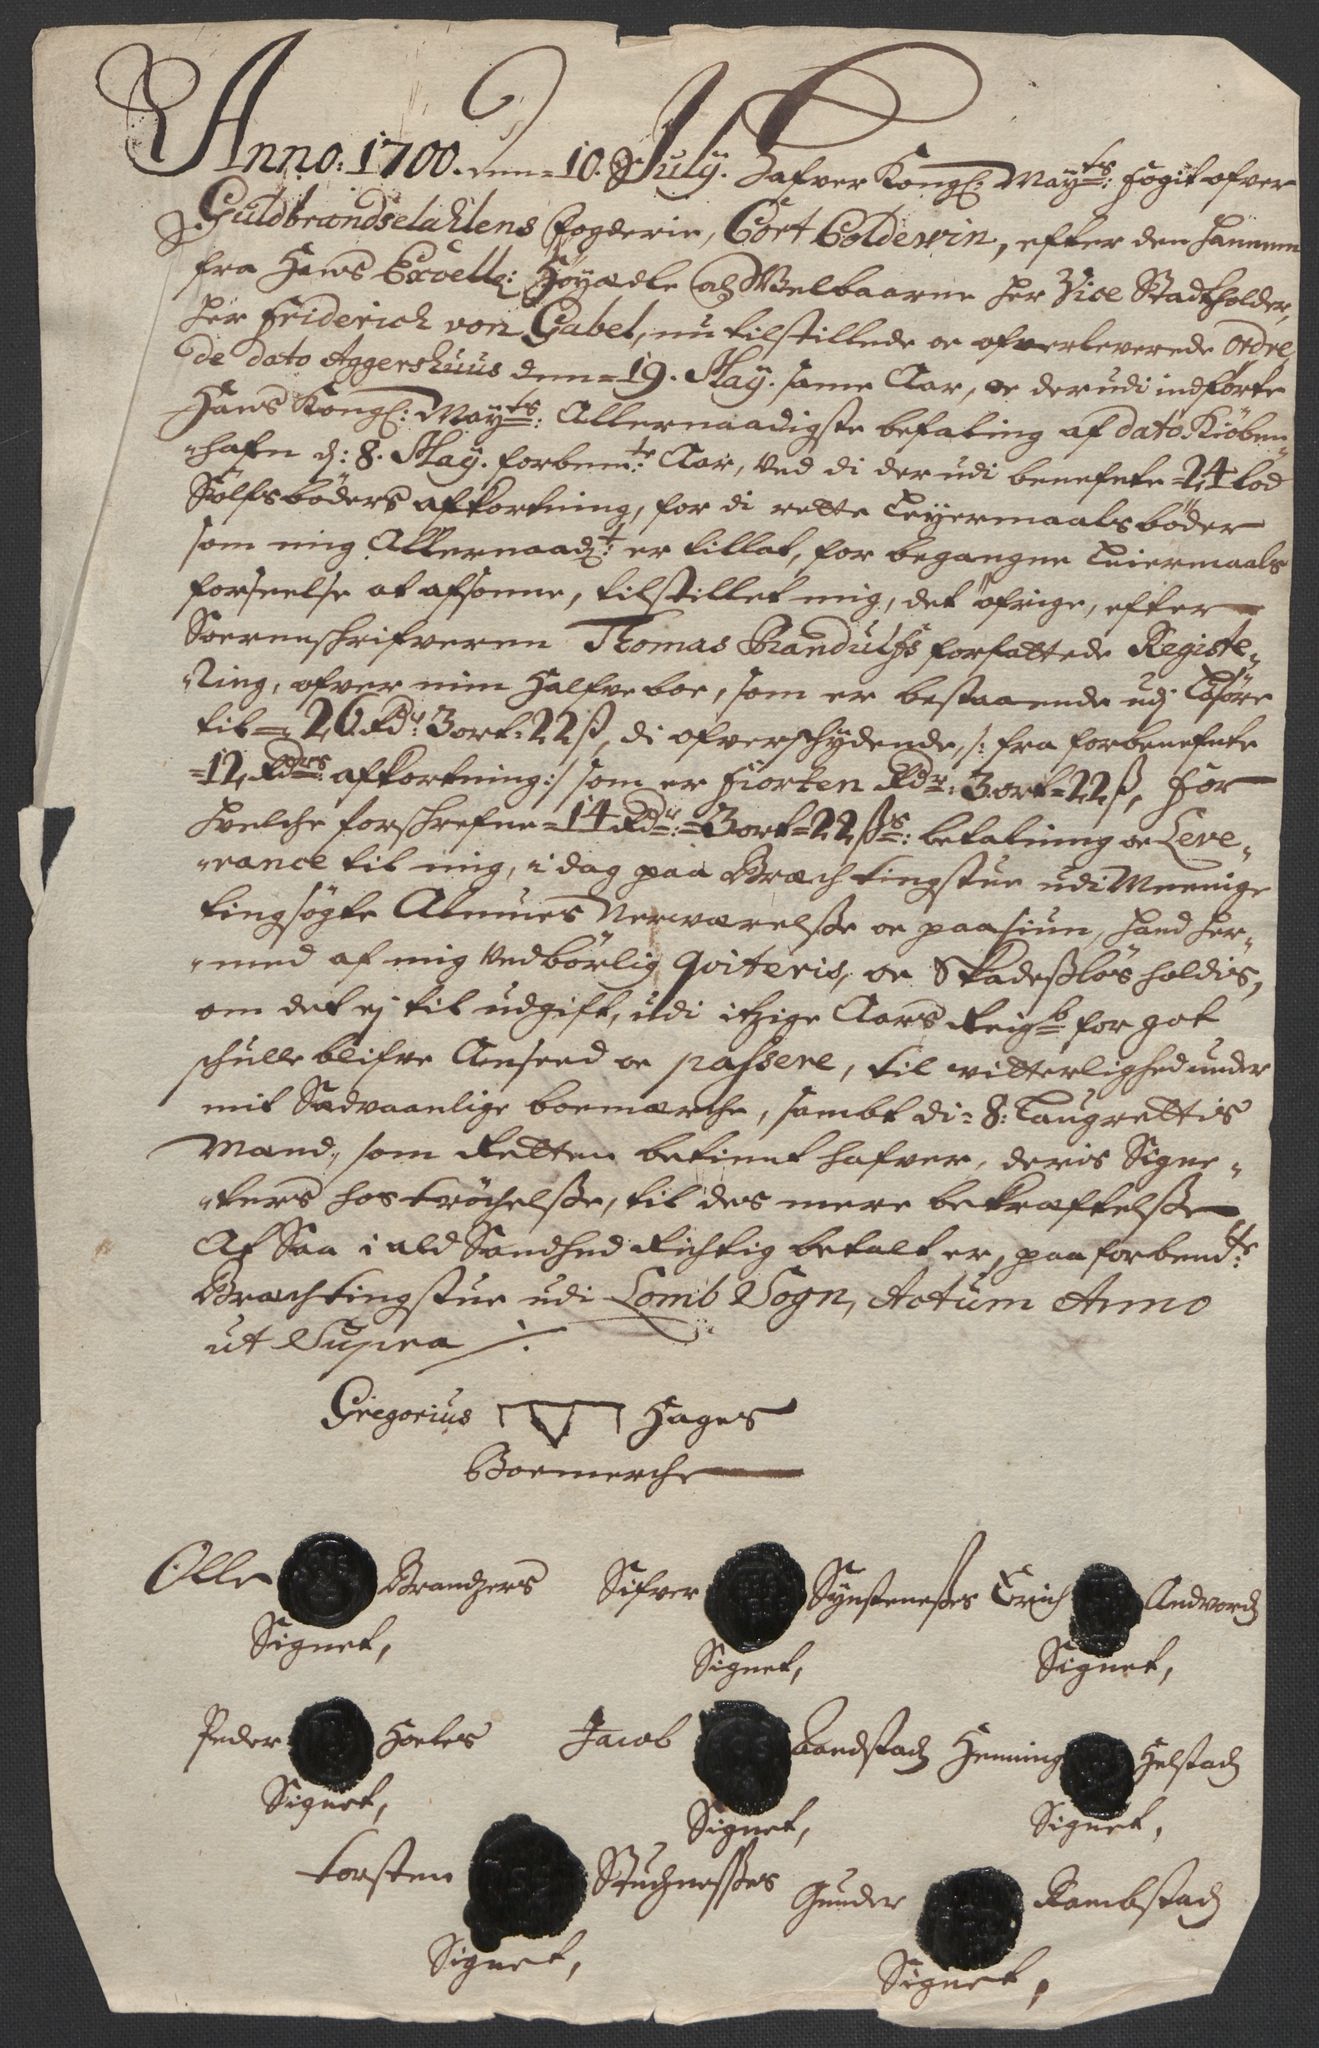 Anno: 1700. den = 10. July. Hafver Kongl: Mayts: fogit ofver
Guldbrandsdahlens fogderie, Cort Coldewin, efter den hannem
fra Hans Excell: Höyædle oc Welbaarne Her Vice Stadtholder,
Her Friderich von Gabel, nu tilstillede oc ofverleverede Ordre,
de dato Aggershuus den = 19. May. same Aar, oc derudi indförte
Hans Kongl: Mayts: Allernaadigste befaling af dato Kiöben-
-hafn d: 8. May. forbente: Aar, Ved di derudi benefnte = 24 lod
Sölfsböders afkortning, for di rette Leyermaalsböder
som mig Allernaadt: er tillat, for begangne Leiermaals
forseelse at afsonne, tilstillet mig, det öfrige, efter
Sorenschrifveren Thomas Randulfs forfattede Registe-
-ring, ofver min halfve boe, som er bestaaende udj Lösöre
til = 26 Rdr: 3 ort = 22 ß, di ofverschydende, /: fra forbenefnte
= 12 Rdrs: afkortning :/ som er fiorten Rdr: 3 ort = 22 ß, For
hvelche forschrefne = 14 Rdr: = 3 ort = 22 ßs: betalning oc Leve-
-rance til mig, i dag paa Brech tingstue udi Meenige
tingsögte Almues Nerværelsse oc paasiun, hand her-
-med af mig Vedbörlig qviteris, oc Skadesslös holdis,
om det ej til udgift, udi itzige Aars Reigb for got
schulle blifve Anseed oc passere, til vitterlighed under
mit Sædvaanlige boemærche, sambt di = 8: Laugrettis
Mænd, som Retten betient hafver, deris Signe-
-ters hoströchelsse, til des mere bekræftelsse
At Saa i ald Sandhed Richtig betalt er, paa forbendte:
Brech tingstue udi Lomb Sogn, Actum Anno
ut Supra /.
Gregorius Hages
Boemerche
Olle Brandzers Sifver Synstenesses Erich Andvord
Signet, Signet, Signet,
Peder Hoeles Jacob Aandstad Henning Helstad
Signet, Signet, Signet,
Torsten Stuchnesses Gunder Rambstad
Signet, Signet,